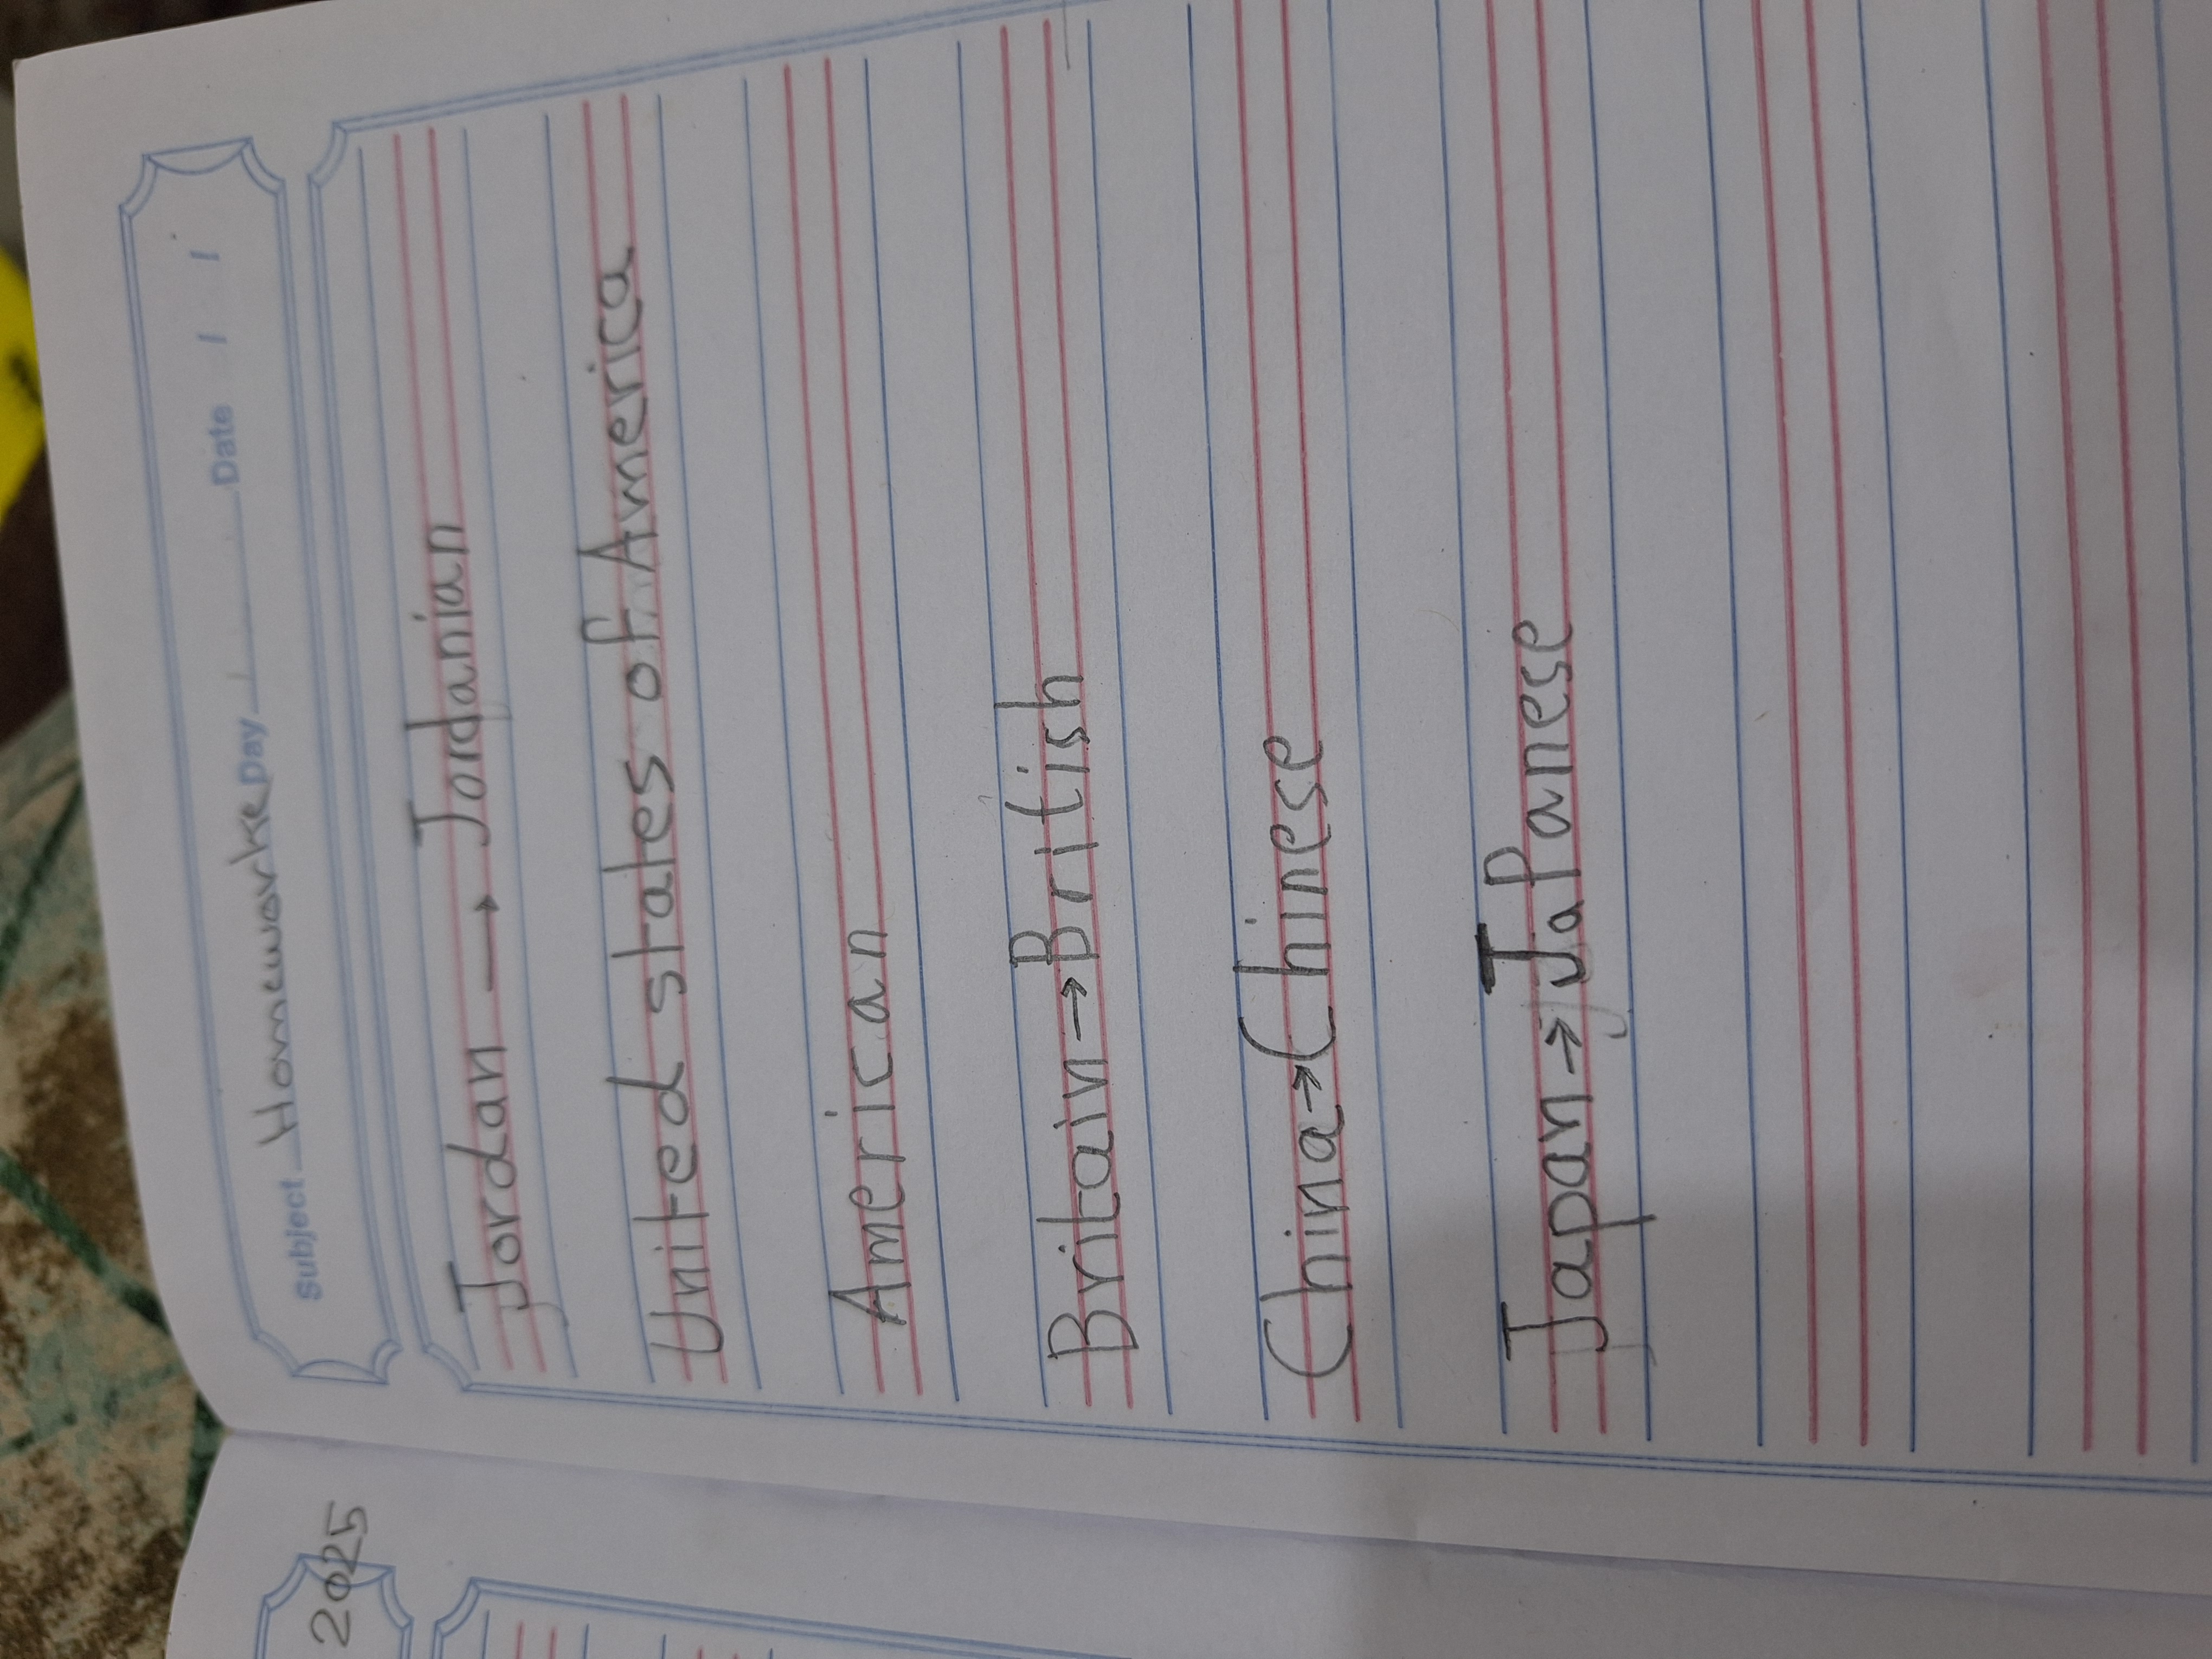 Subject Homeworke Day Date / /
Jordan → Jordanian
United states of America
American
Britain → British
China → Chinese
Japan → JaPanese
2025